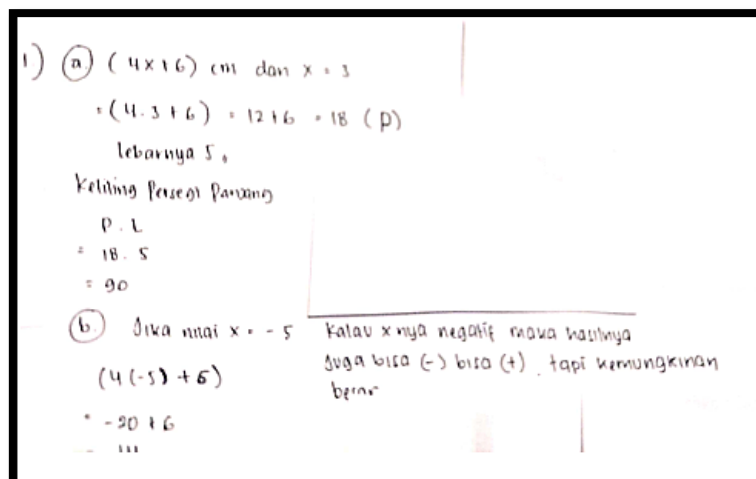 1) (a) (4x+6) cm dan x = 3
= (4.3+6) = 12+6 = 18 (P)
lebarnya 5.
Keliling Persegi Panjang
P . L
= 18 . 5
= 90
(b.) Jika nilai x = -5
(4(-5) + 6)
= -20 + 6
Kalau x nya negatif maka hasilnya
Juga bisa (-) bisa (+). tapi kemungkinan